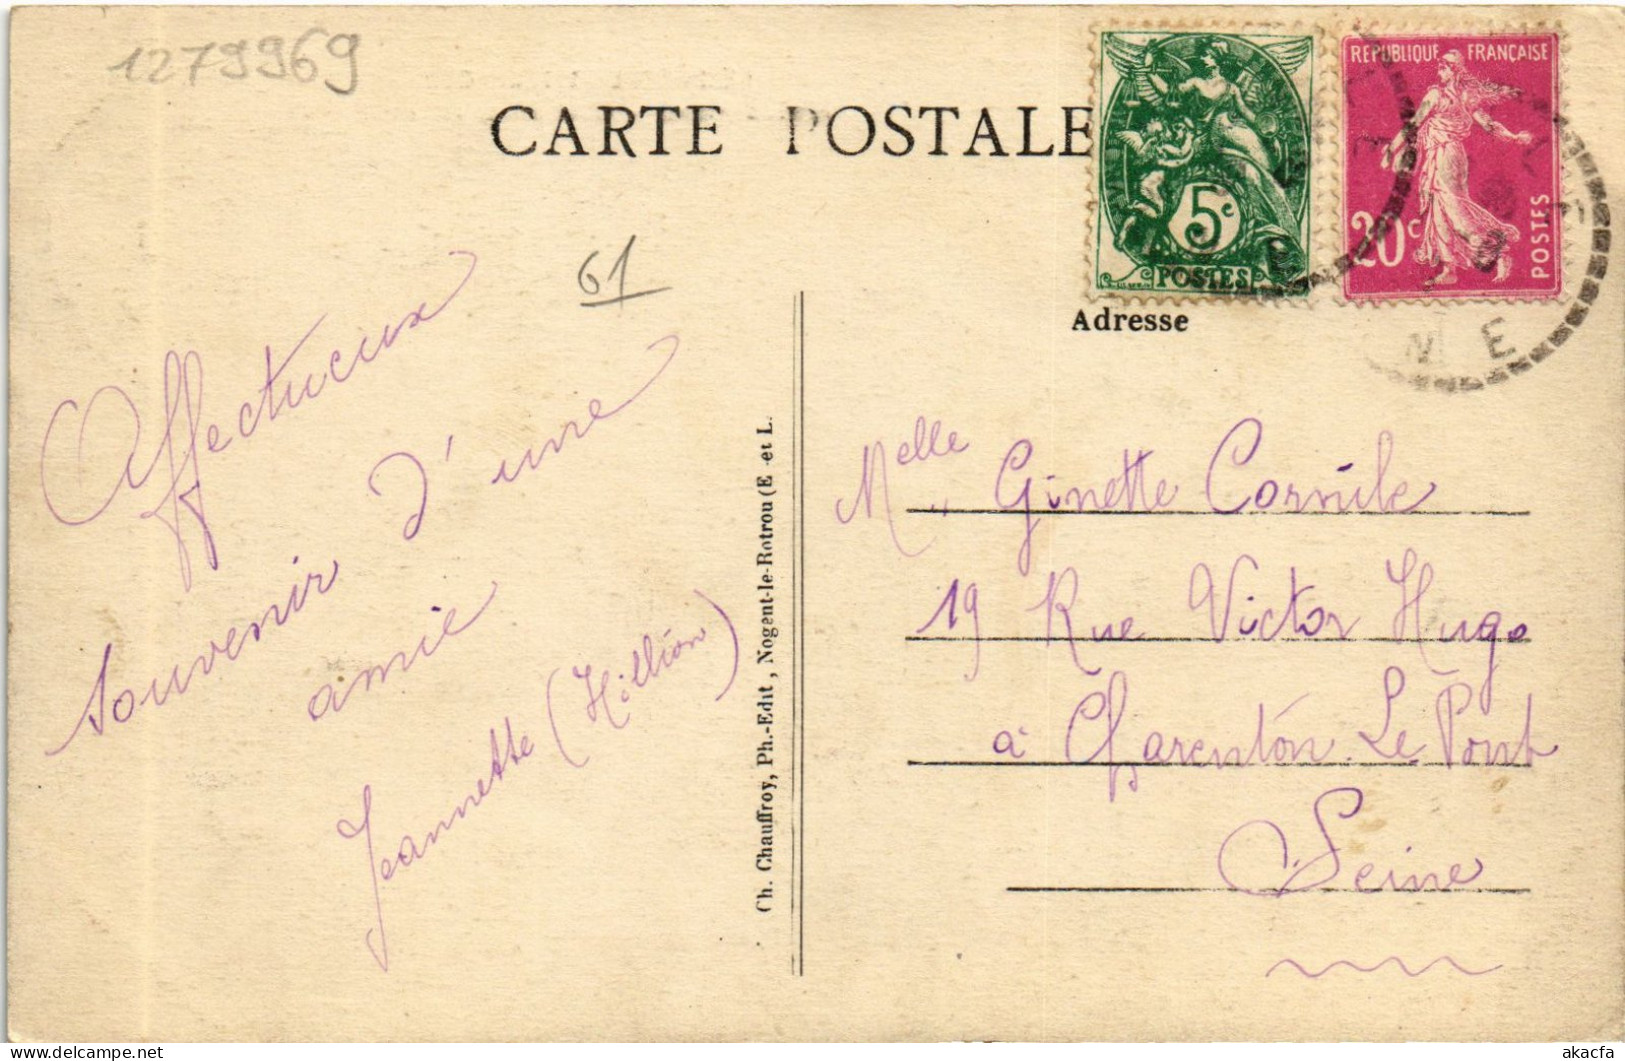 1279969
CARTE POSTALE
5c
POSTES
REPUBLIQUE FRANÇAISE
20c
POSTES
N E
61
Adresse
Affectueux
souvenir d'une
amie
Jeannette (Hillion)
Ch. Chauffroy, Ph.-Edit, Nogent-le-Rotrou (E-et L.
Melle Ginette Cornile
19 Rue Victor Hugo
à Charenton Le Pont
Seine
akacfa